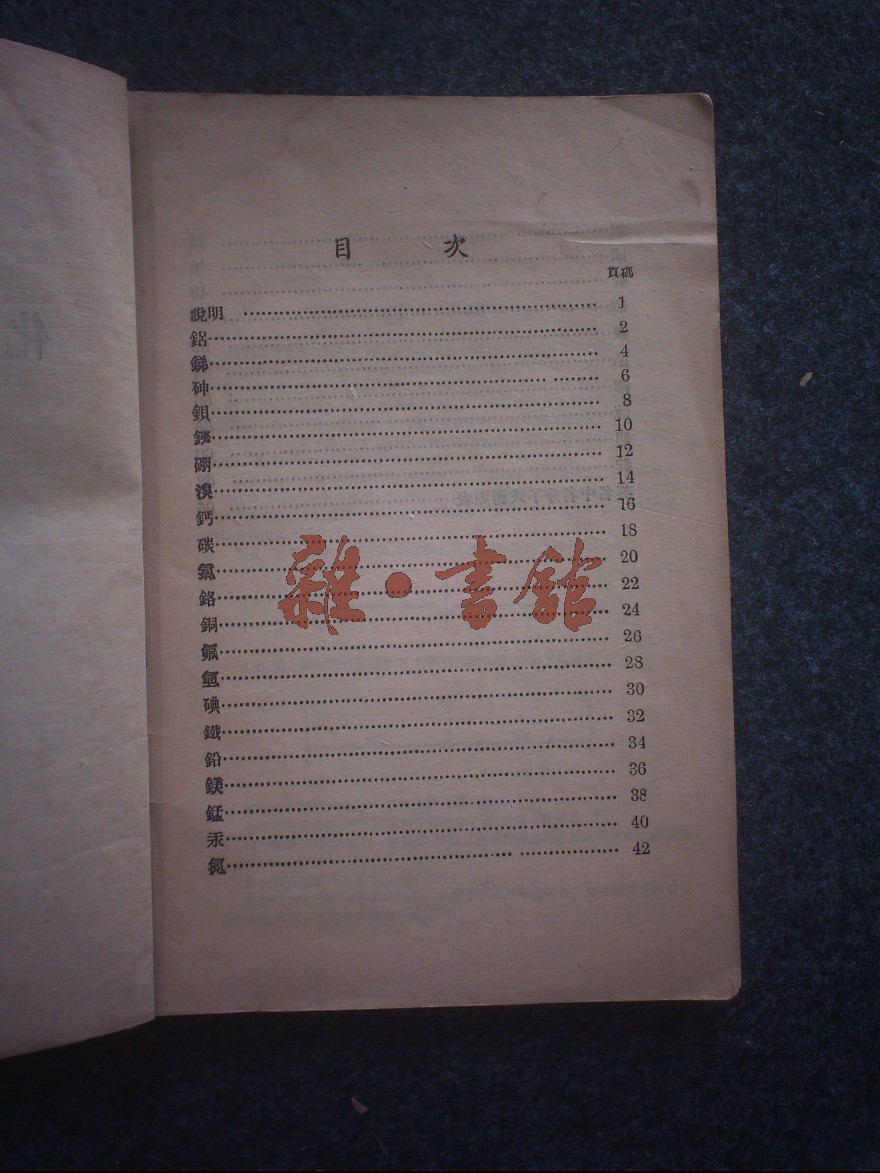 目 次
頁碼
說明 …… 1
鋁 …… 2
銻 …… 4
砷 …… 6
鋇 …… 8
鉍 …… 10
硼 …… 12
溴 …… 14
鈣 …… 16
碳 …… 18
氯 …… 20
鉻 …… 22
銅 …… 24
氟 …… 26
氫 …… 28
碘 …… 30
鐵 …… 32
鉛 …… 34
鎂 …… 36
錳 …… 38
汞 …… 40
氮 …… 42
雜·書館